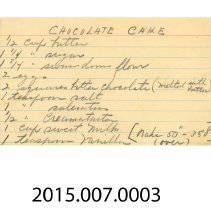 CHOCOLATE CAKE
1/2 cup butter
1 3/4 " sugar
1 3/4 " swansdown flour
2 eggs
2 squares bitter chocolate (melted with butter)
1 teaspoon salt
1 " saleratus
1/2 " Creamatartar
1 cup sweet milk [Bake 50 - 350
1 teaspoon Vanilla (over)
2015.007.0003